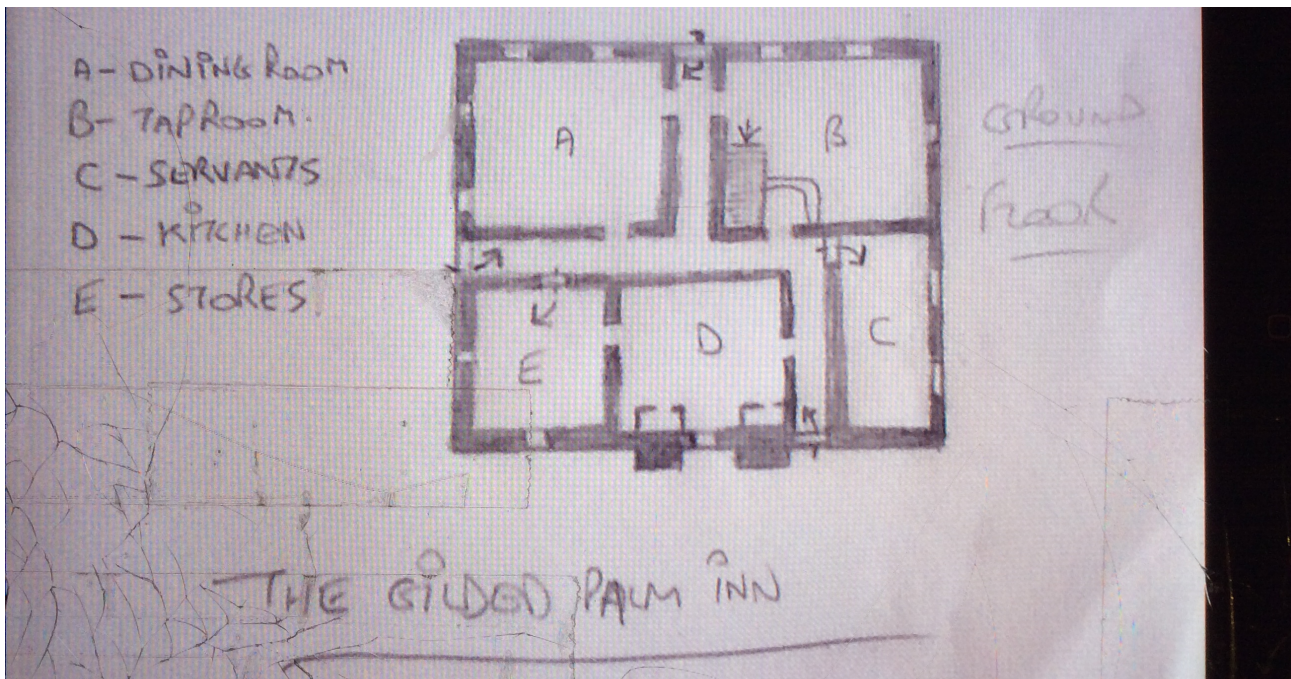 A - DINING ROOM
B - TAPROOM.
C - SERVANTS
D - KITCHEN
E - STORES
A
B
C
D
E
GROUND
FLOOR
THE GILDED PALM INN